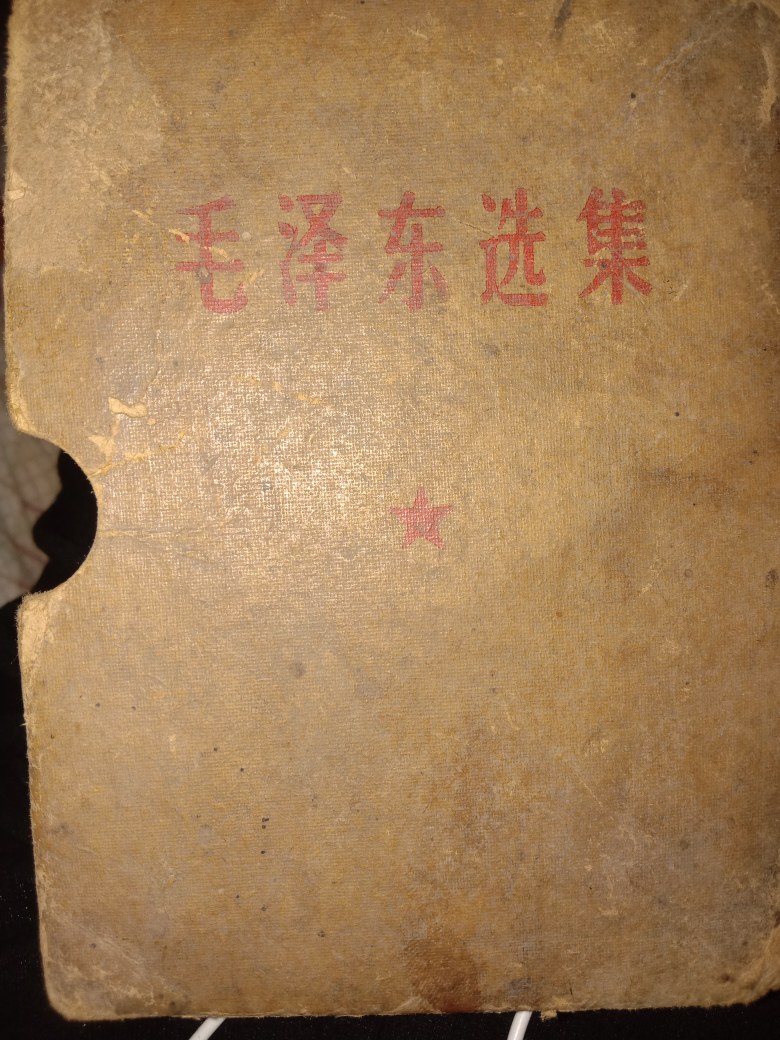 毛泽东选集